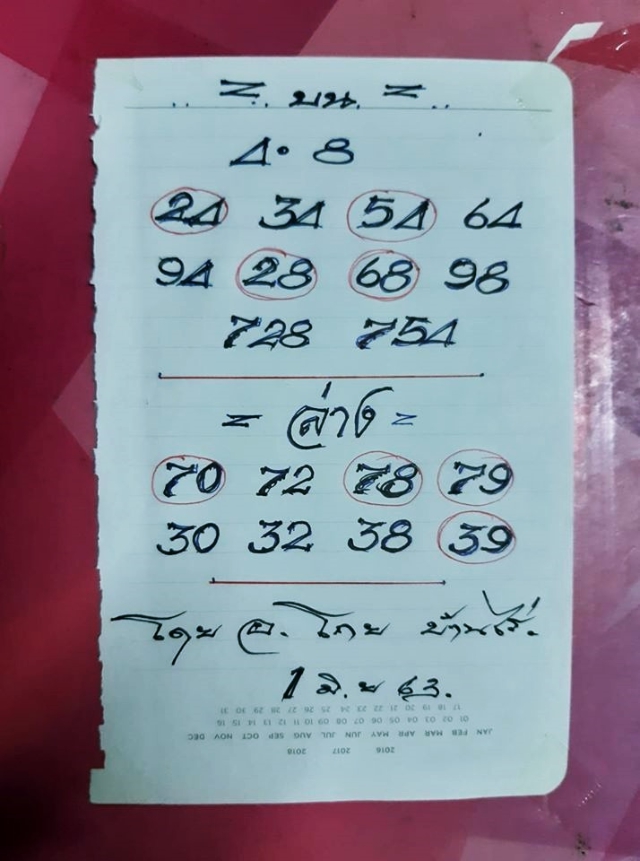 = บน =
4 · 8
24 34 54 64
94 28 68 98
728 754
= ล่าง =
70 72 78 79
30 32 38 39
โดย อ. โกย บ้านไร่.
1 มิ.ย 63.
17 18 19 20 21 22 23 24 25 26 27 28 29 30 31
01 02 03 04 05 06 07 08 09 10 11 12 13 14 15 16
JAN FEB MAR APR MAY JUN JUL AUG SEP OCT NOV DEC
2016 2017 2018